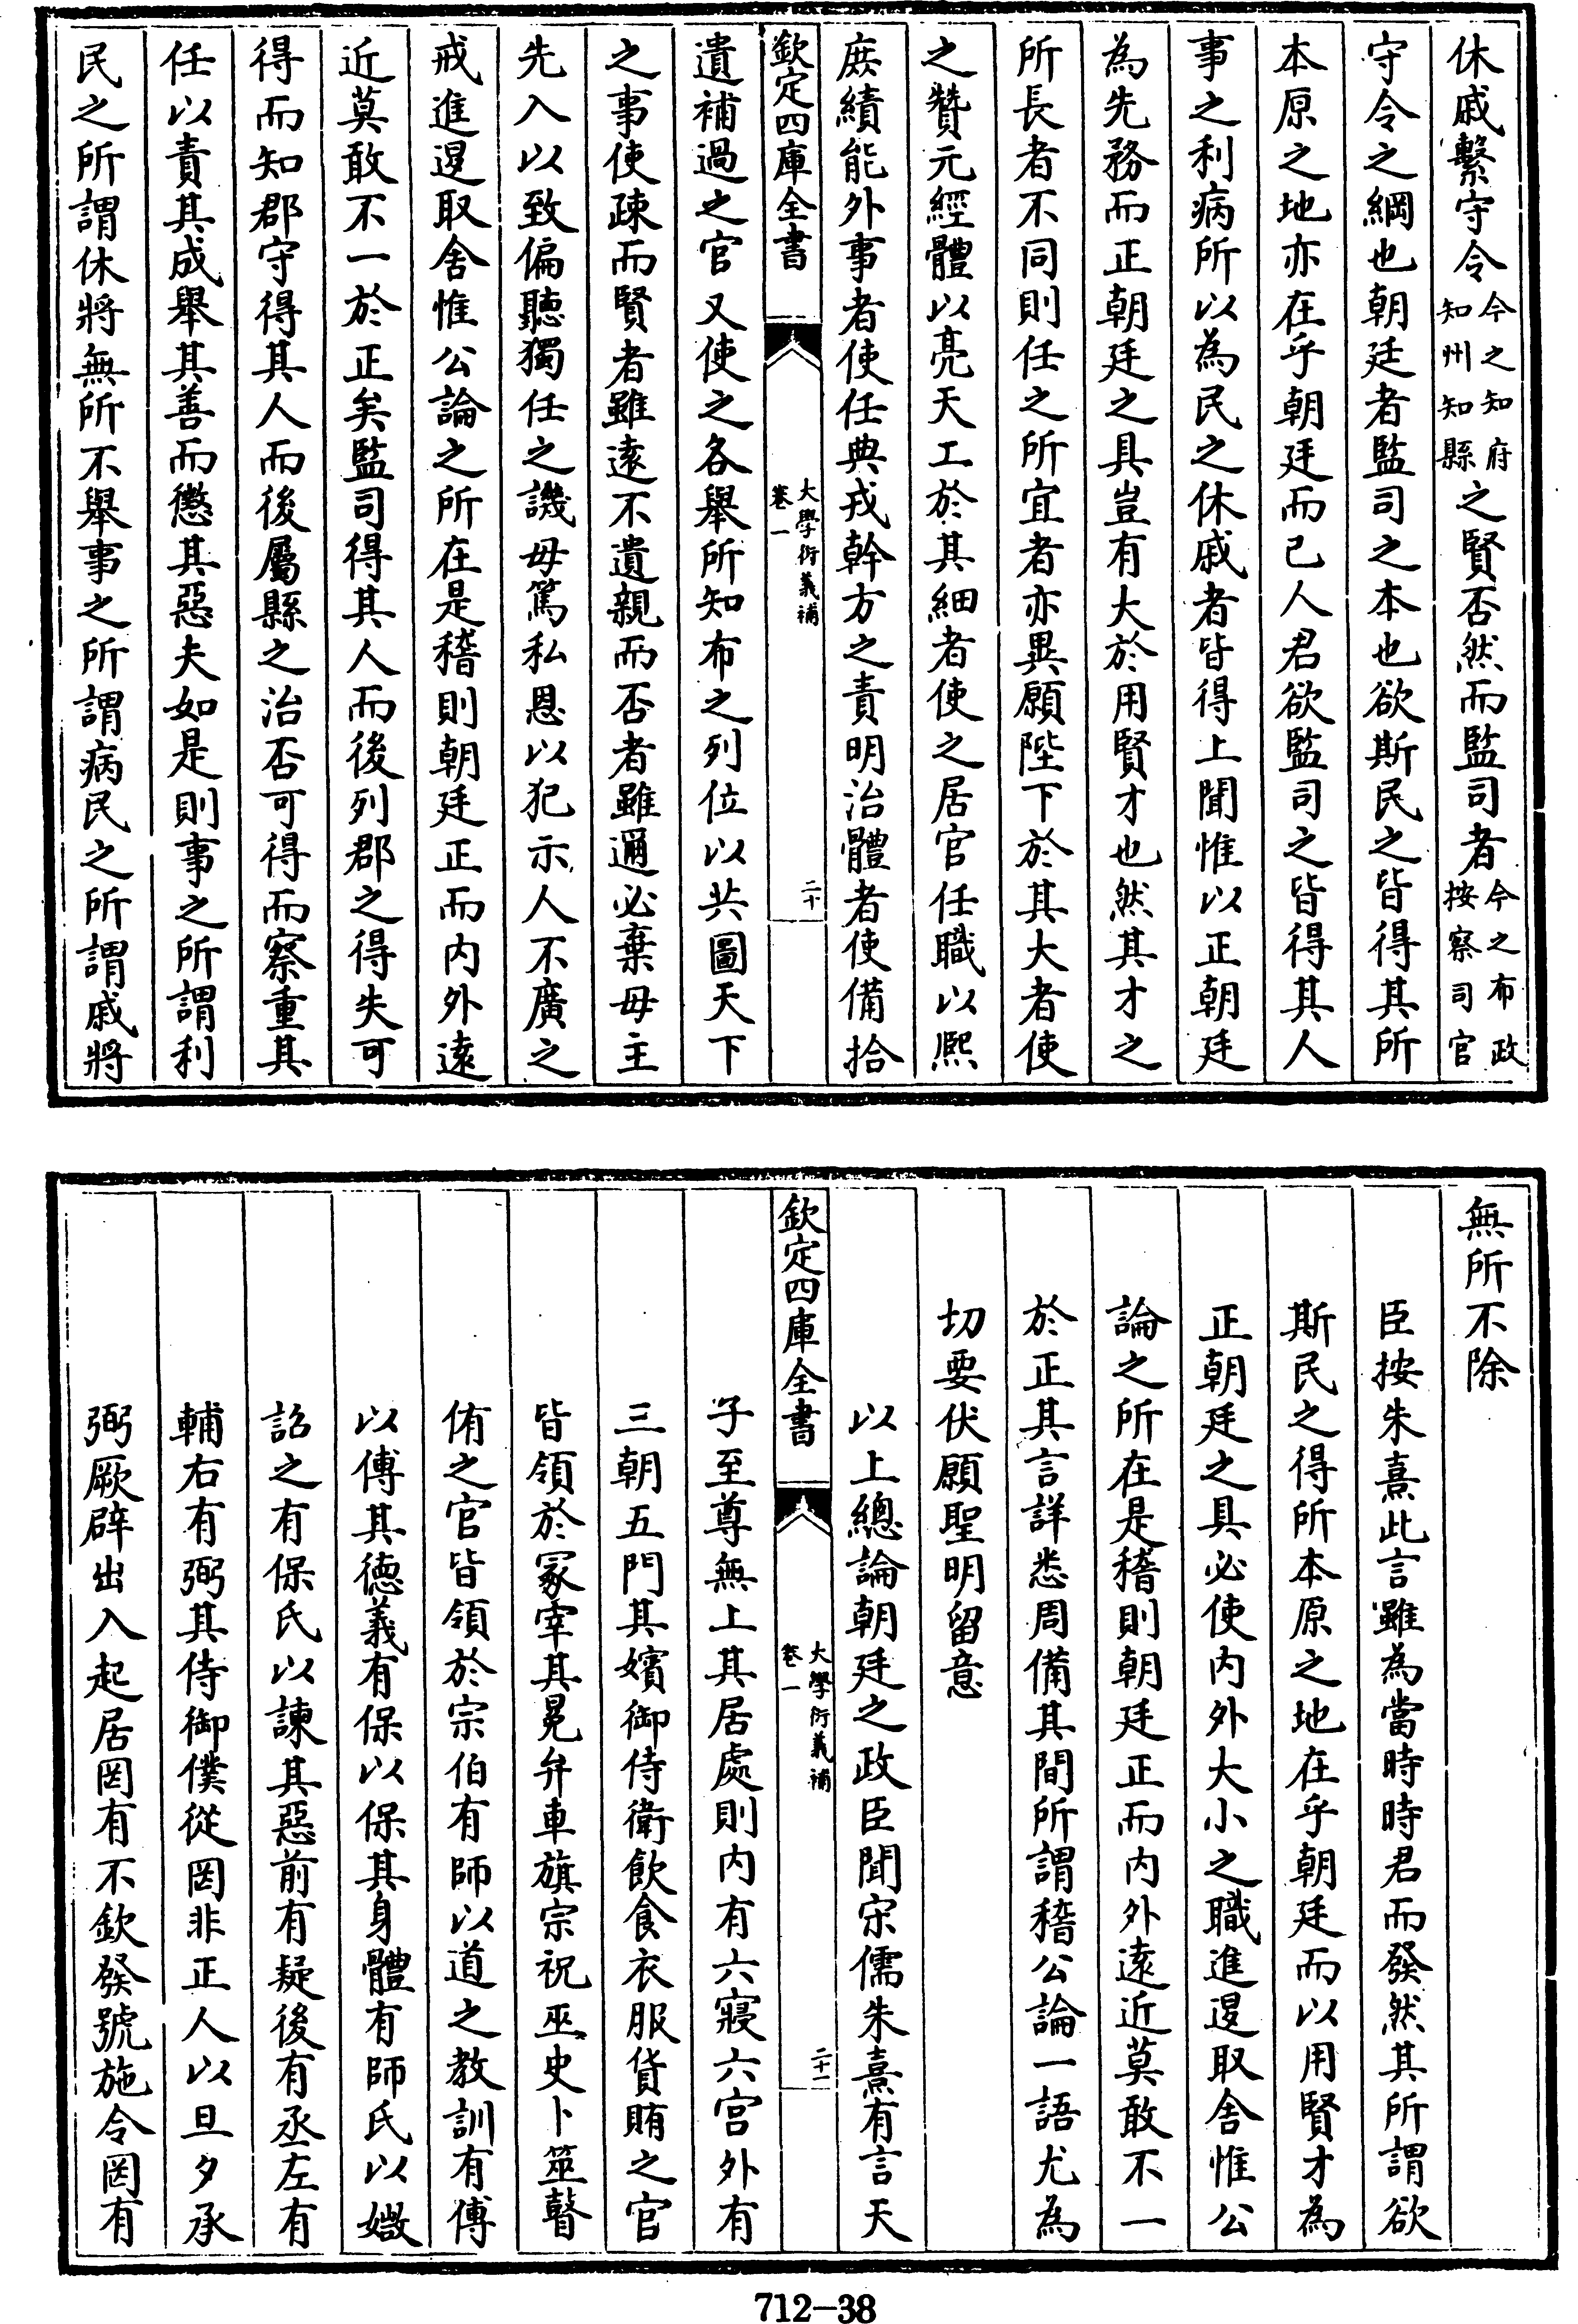 休戚繫守令今之知府知州知縣之賢否然而監司者今之布政按察司官
守令之綱也朝廷者監司之本也欲斯民之皆得其所
本原之地亦在乎朝廷而已人君欲監司之皆得其人
事之利病所以為民之休戚者皆得上聞惟以正朝廷
為先務而正朝廷之具豈有大於用賢才也然其才之
所長者不同則任之所宜者亦異願陛下於其大者使
之贊元經體以亮天工於其細者使之居官任職以熙
庶績能外事者使任典戎幹方之責明治體者使備拾
欽定四庫全書
大學衍義補
卷一
二十
遺補過之官又使之各舉所知布之列位以共圖天下
之事使疎而賢者雖遠不遺親而否者雖邇必棄毋主
先入以致偏聽獨任之譏毋篤私恩以犯示人不廣之
戒進退取舍惟公論之所在是稽則朝廷正而內外遠
近莫敢不一於正矣監司得其人而後列郡之得失可
得而知郡守得其人而後屬縣之治否可得而察重其
任以責其成舉其善而懲其惡夫如是則事之所謂利
民之所謂休將無所不舉事之所謂病民之所謂戚將
無所不除
臣按朱熹此言雖為當時時君而發然其所謂欲
斯民之得所本原之地在乎朝廷而以用賢才為
正朝廷之具必使內外大小之職進退取舍惟公
論之所在是稽則朝廷正而內外遠近莫敢不一
於正其言詳悉周備其間所謂稽公論一語尤為
切要伏願聖明留意
以上總論朝廷之政臣聞宋儒朱熹有言天
欽定四庫全書
大學衍義補
卷一
二十一
子至尊無上其居處則內有六寢六宮外有
三朝五門其嬪御侍衛飲食衣服貨賄之官
皆領於冢宰其冕弁車旗宗祝巫史卜筮瞽
侑之官皆領於宗伯有師以道之教訓有傅
以傅其德義有保以保其身體有師氏以媺
詔之有保氏以諫其惡前有疑後有丞左有
輔右有弼其侍御僕從罔非正人以旦夕承
弼厥辟出入起居罔有不欽發號施令罔有
712-38